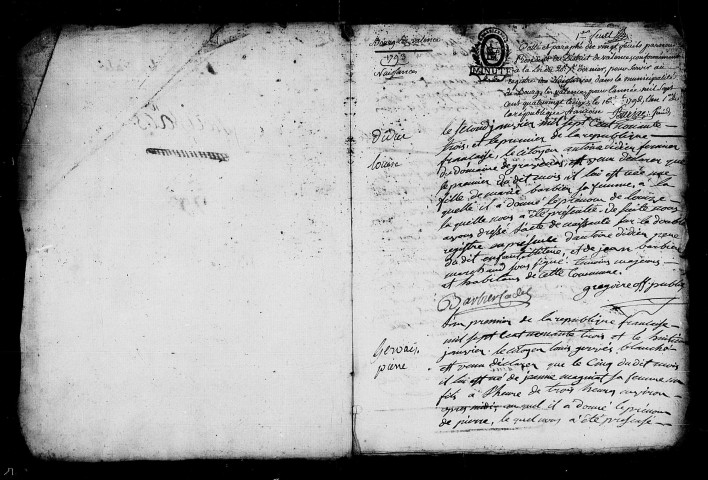 Bourg les valence
1793
Naissances
1er feuillet
Cotté et paraphé des vingt feuillets par nous
Président du District de valence, conformément
à la Loi du 20 7bre dernier, pour servir au
registre des Naissances, dans la municipalité
de Bourg les valence, pour l'année mil sept
cent quatre vingt treize, le 16 1792, l'an 1er de
la république française
Didier
louise
le second janvier mil sept cent nonante
trois, et le premier de la republique
française, le citoyen antoine didier fermier
du domaine de est venu declarer que
le premier du dit mois, il lui est née une
fille de marie barbier sa femme, a la
quelle il a donné le prenom de louise
la quelle nous a été présentée. De suite nous
avons dressé l'acte de naissance sur le double
registre en presence d'antoine didier pere
du dit enfant, et de jean barbier
marchand sous signé temoins majeurs
et habitans de cette commune.
Barbier cadet
gregoire off. public
Gervais
pierre
L'an premier de la republique française
mil sept cent nonante trois et le huitieme
janvier le citoyen louis gervais blanchet
est venu déclarer que le cinq du dit mois
il lui est né de jeanne magniat sa femme, un
fils à l'heure de trois heures environ
apres midi, au quel il a donné le prenom
de pierre, le quel nous a été presenté